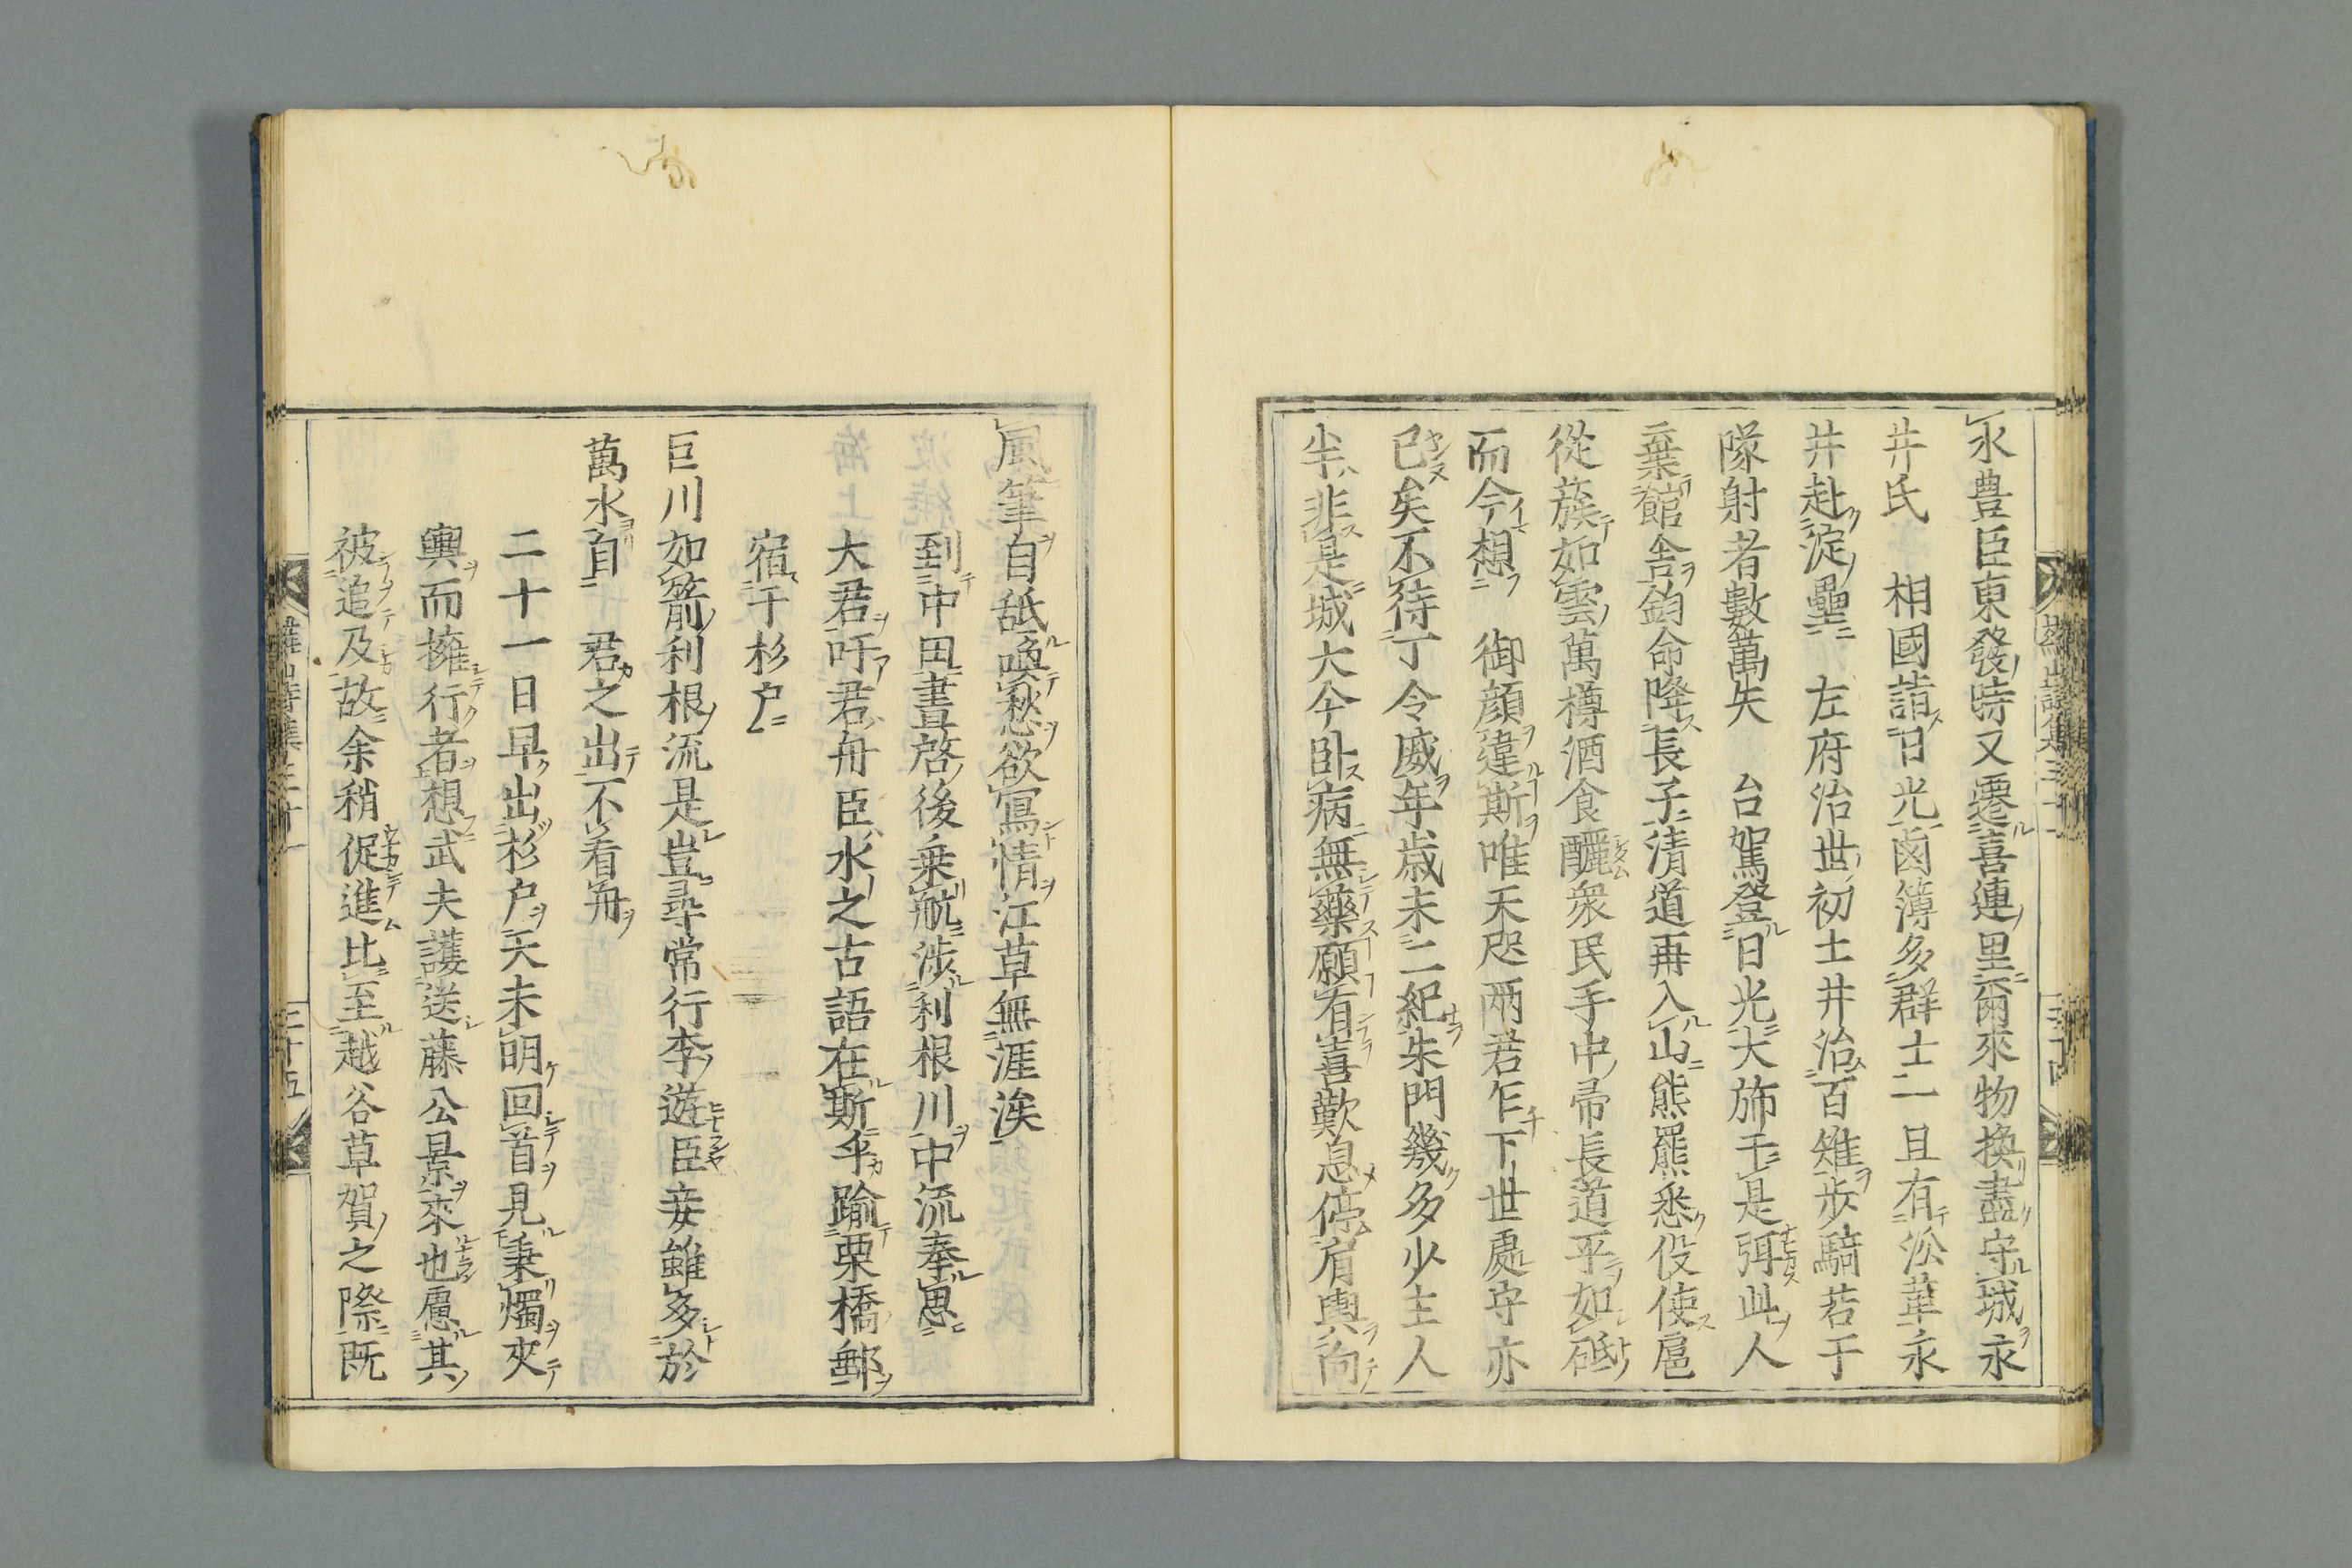 水豊臣東發時又遷喜連里爾來物換盡守城永
井氏　相國詣日光鹵簿多群士一旦有訟葦永
井赴淀壘　左府治世初土井治百雉歩騎若干
隊射者數萬矢　台駕登日光大旆干是弭此人
棄館舍鈞命降長子清道再入山熊羆悉役使扈
從蔟如雲萬樽酒食釃衆民手中帚長道平如砥
而今想　御顔違斯唯天咫両君乍下世處守亦
已矣不待丁令威年歳未二紀朱門幾多少主人
半非是城大今卧病無藥願有喜歎息停肩輿向
風筆自舐喚愁欲寫情江草無涯涘
到中田晝啓後乗航渉利根川中流奉思
大君吁君舟臣水之古語在斯乎踰栗橋郵
宿于杉戸
巨川如箭利根流是豈尋常行李遊臣妾雖多於
萬水自　君之出不着舟
二十一日早出杉戸天未明回首見秉燭夾
輿而擁行者想武夫護送藤公景來也慮其
被追及故余稍促進比至越谷草賀之際既